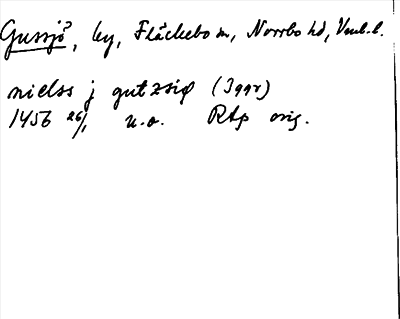 Gussjö, by, Fläckebo sn, Norrbo hd, Vml.l.
nielss j gutzsiø (3ggr)
1456 26/1 u.o. RAp orig.